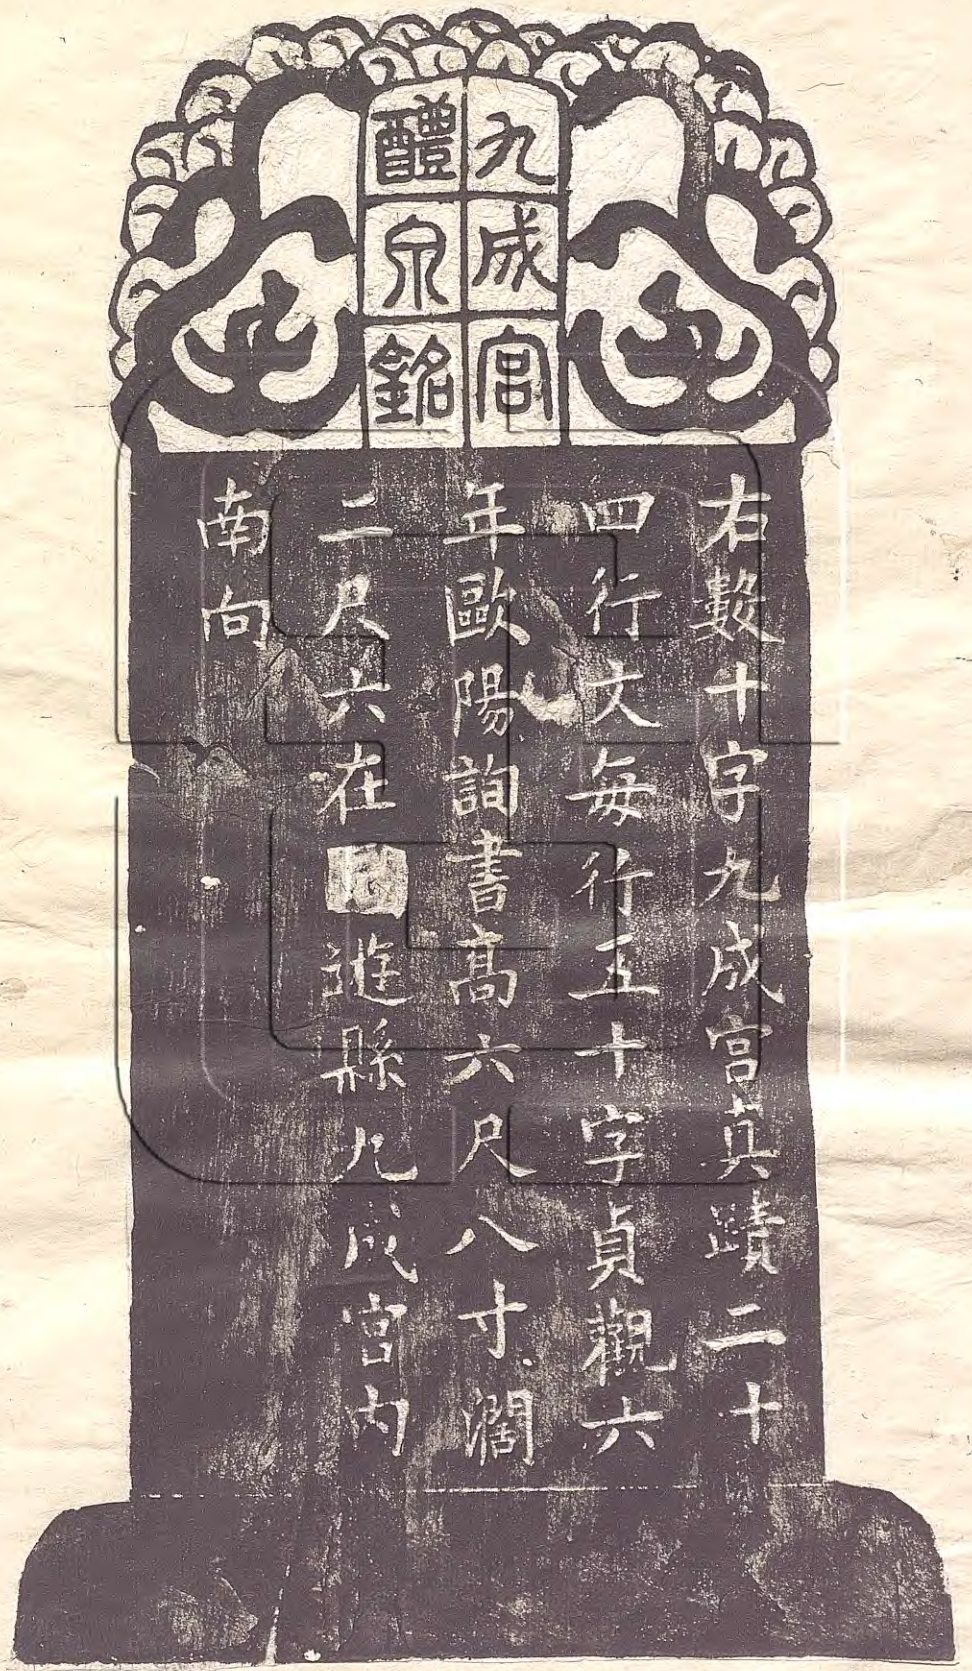 九成宮
醴泉銘
右數十字九成宮真蹟二十
四行文每行五十字貞觀六
年歐陽詢書高六尺八寸濶
二尺六在遊縣九成宮內
南向